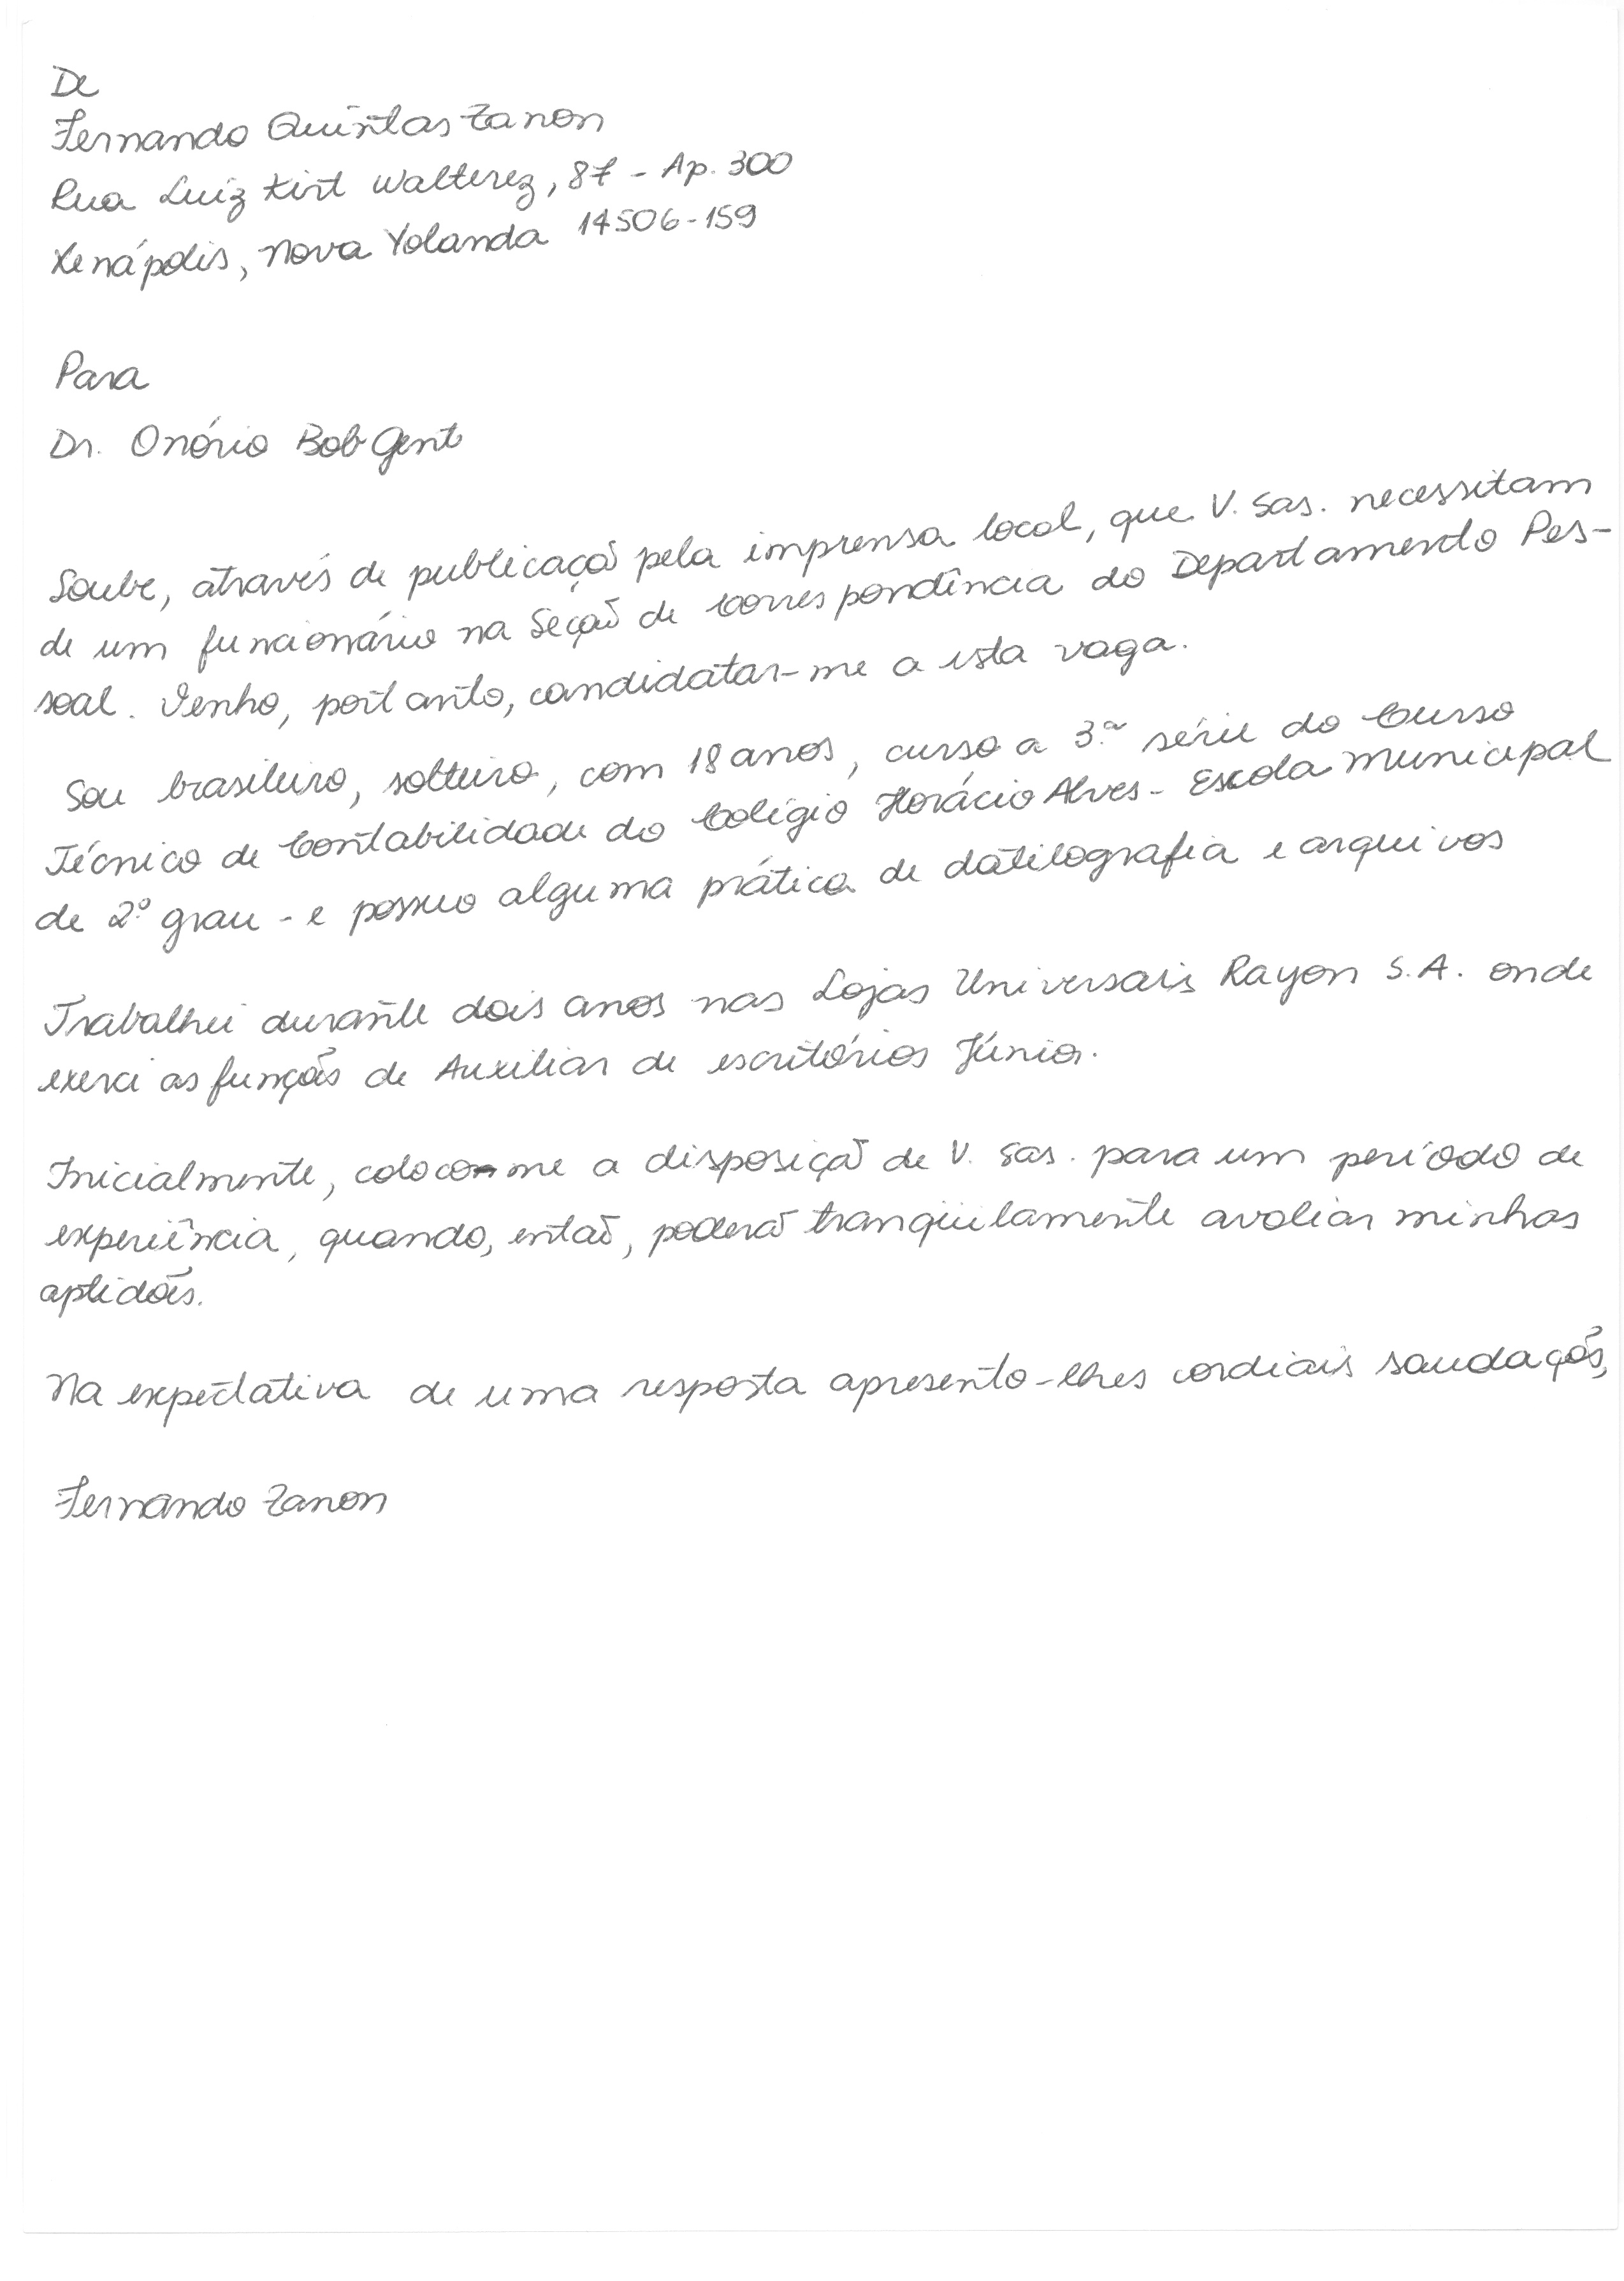 De
Fernando Quintas Zanon
Rua Luiz Kirt Walterez, 87 - Ap. 300
Xenápolis, Nova Yolanda 14506-159
Para
Dr. Onório Bob Gent
Soube, através de publicação pela imprensa local, que V. Sas. necessitam
de um funcionário na Seção de Correspondência do Departamento Pes-
soal. Venho, portanto, candidatar-me a esta vaga.
Sou brasileiro, solteiro, com 18 anos, curso a 3ª série do Curso
Técnico de Contabilidade do Colégio Horácio Alves - Escola Municipal
de 2º grau - e possuo alguma prática de datilografia e arquivos
Trabalhei durante dois anos nas Lojas Universais Rayon S.A. onde
exerci as funções de Auxiliar de escritórios Júnior.
Inicialmente, coloco-me a disposição de V. Sas. para um período de
experiência, quando, então, poderão tranqüilamente avaliar minhas
aptidões.
Na expectativa de uma resposta apresento-lhes cordiais saudações,
Fernando Zanon